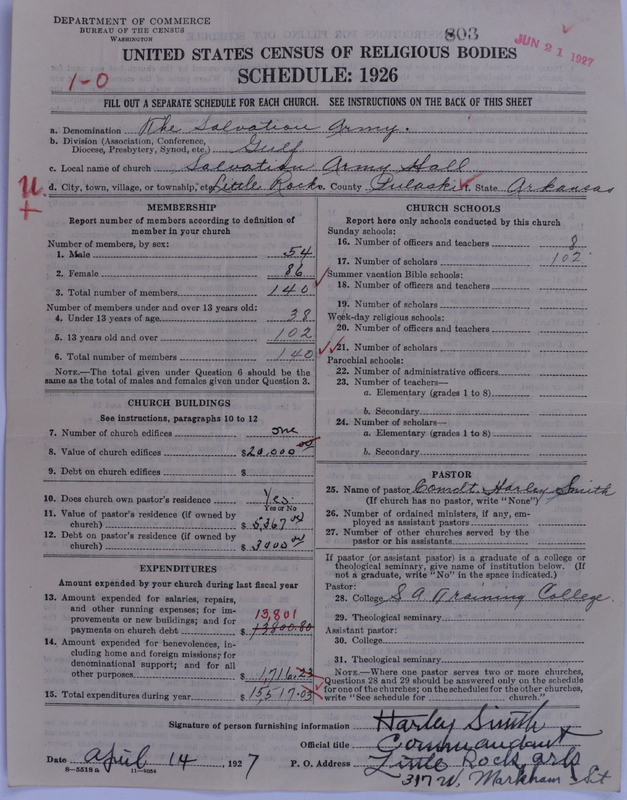 DEPARTMENT OF COMMERCE
BUREAU OF THE CENSUS
WASHINGTON
803
JUN 21 1927
UNITED STATES CENSUS OF RELIGIOUS BODIES
SCHEDULE: 1926
1-0
FILL OUT A SEPARATE SCHEDULE FOR EACH CHURCH. SEE INSTRUCTIONS ON THE BACK OF THIS SHEET
a. Denomination The Salvation Army.
b. Division (Association, Conference, Diocese, Presbytery, Synod, etc.) Gulf
c. Local name of church Salvation Army Hall
U. +
d. City, town, village, or township, etc. Little Rock e. County Pulaski f. State Arkansas
MEMBERSHIP
Report number of members according to definition of
member in your church
Number of members, by sex:
1. Male 54
2. Female 86
3. Total number of members 140
Number of members under and over 13 years old:
4. Under 13 years of age 38
5. 13 years old and over 102
6. Total number of members 140
NOTE.—The total given under Question 6 should be the
same as the total of males and females given under Question 3.
CHURCH BUILDINGS
See instructions, paragraphs 10 to 12
7. Number of church edifices one
8. Value of church edifices $20,000 00
9. Debt on church edifices $
10. Does church own pastor's residence Yes
Yes or No
11. Value of pastor's residence (if owned by
church) $5,367 00
12. Debt on pastor's residence (if owned by
church) $3000 00
EXPENDITURES
Amount expended by your church during last fiscal year
13. Amount expended for salaries, repairs,
and other running expenses; for im-
provements or new buildings; and for 13,801
payments on church debt $13800.80
14. Amount expended for benevolences, in-
cluding home and foreign missions; for
denominational support; and for all
other purposes $1,716.23
15. Total expenditures during year $15,517.03
CHURCH SCHOOLS
Report here only schools conducted by this church
Sunday schools:
16. Number of officers and teachers 8
17. Number of scholars 102
Summer vacation Bible schools:
18. Number of officers and teachers
19. Number of scholars
Week-day religious schools:
20. Number of officers and teachers
21. Number of scholars
Parochial schools:
22. Number of administrative officers
23. Number of teachers—
a. Elementary (grades 1 to 8)
b. Secondary
24. Number of scholars—
a. Elementary (grades 1 to 8)
b. Secondary
PASTOR
25. Name of pastor Comdt. Harley Smith
(If church has no pastor, write "None")
26. Number of ordained ministers, if any, em-
ployed as assistant pastors
27. Number of other churches served by the
pastor or his assistants
If pastor (or assistant pastor) is a graduate of a college or
theological seminary, give name of institution below. (If
not a graduate, write "No" in the space indicated.)
Pastor:
28. College S A Training College.
29. Theological seminary
Assistant pastor:
30. College
31. Theological seminary
NOTE.—Where one pastor serves two or more churches,
Questions 28 and 29 should be answered only on the schedule
for one of the churches; on the schedules for the other churches,
write "See schedule for church."
Signature of person furnishing information Harley Smith
Official title Commandant
Date April 14, 1927 P. O. Address Little Rock Ark
317 W. Markham St
8-5518a 11-8054